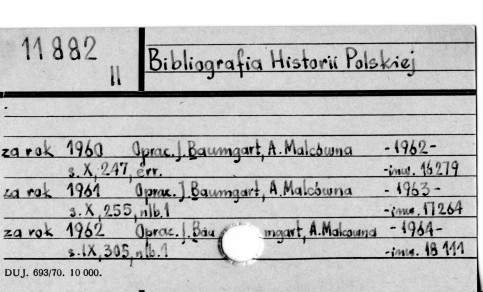 11882
II
Bibliografia Historii Polskiej
za rok 1960 Oprac. J. Baumgart, A. Malcówna -1962-
s. X, 247, err. -inw. 16279
za rok 1961 Oprac. J. Baumgart, A. Malcówna - 1963-
s. X, 255, nlb. 1 -inw. 17264
za rok 1962 Oprac. J. Bau mgart, A. Malcowna -1964-
s. IX, 305, nlb. 1 -inw. 18111
DUJ. 693/70. 10 000.